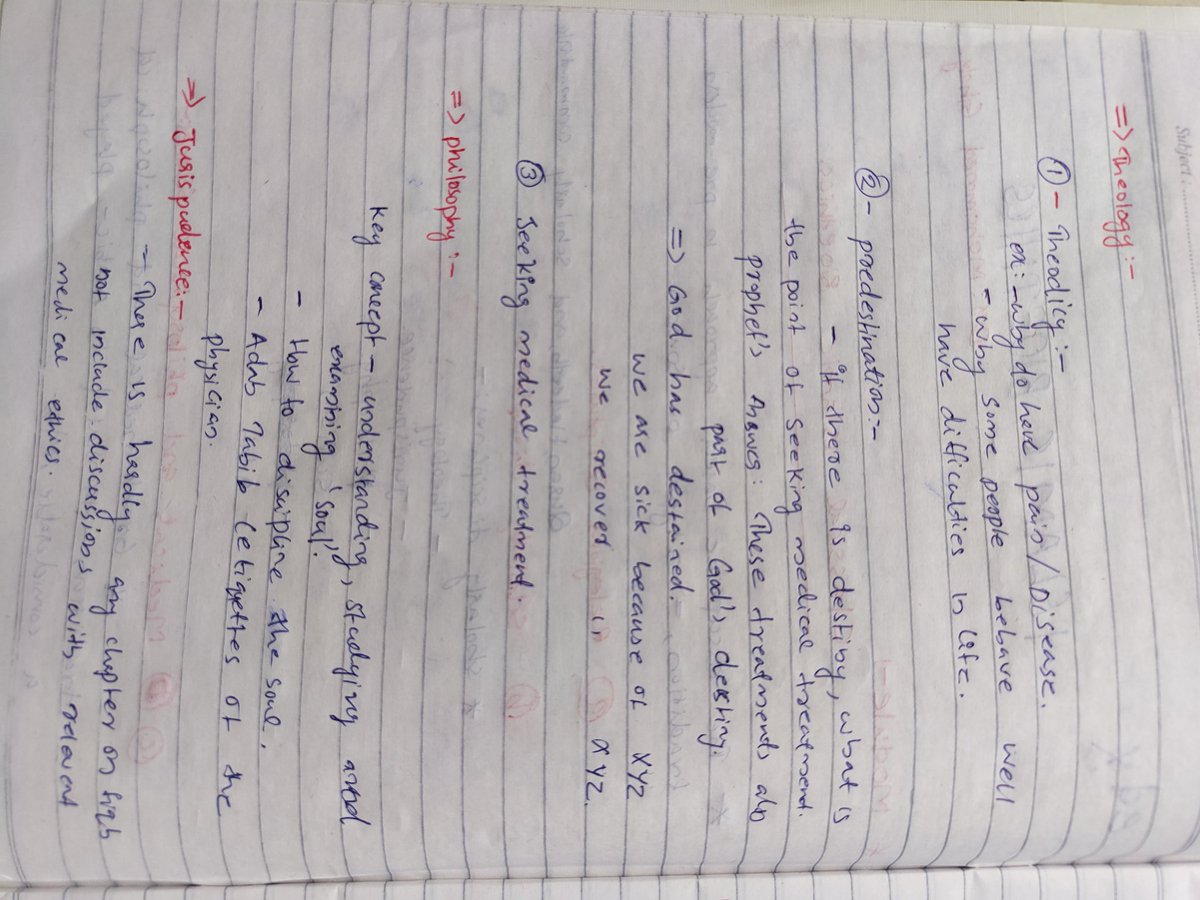 Subject:
=> Theology :-
① - Theodicy :-
ex: - why do have pain / Disease.
- why some people behave well
have difficulties in life.
② - predestination :-
- If there is destiby, what is
the point of seeking medical treatment.
prophet's Answer: These treatments also
part of God's destiny.
=> God has destained.
we are sick because of XYZ
we recover XYZ.
③ Seeking medical treatment.
=> philosophy :-
Key concept - understanding, studying and
examining 'soul'.
- How to disipline the soul.
- Adab Tabib (etiquettes of the
physician.
=> Jurispudence: -
- There is hardly any chapter on fiqh
not include discussions with relevent
medical ethics.